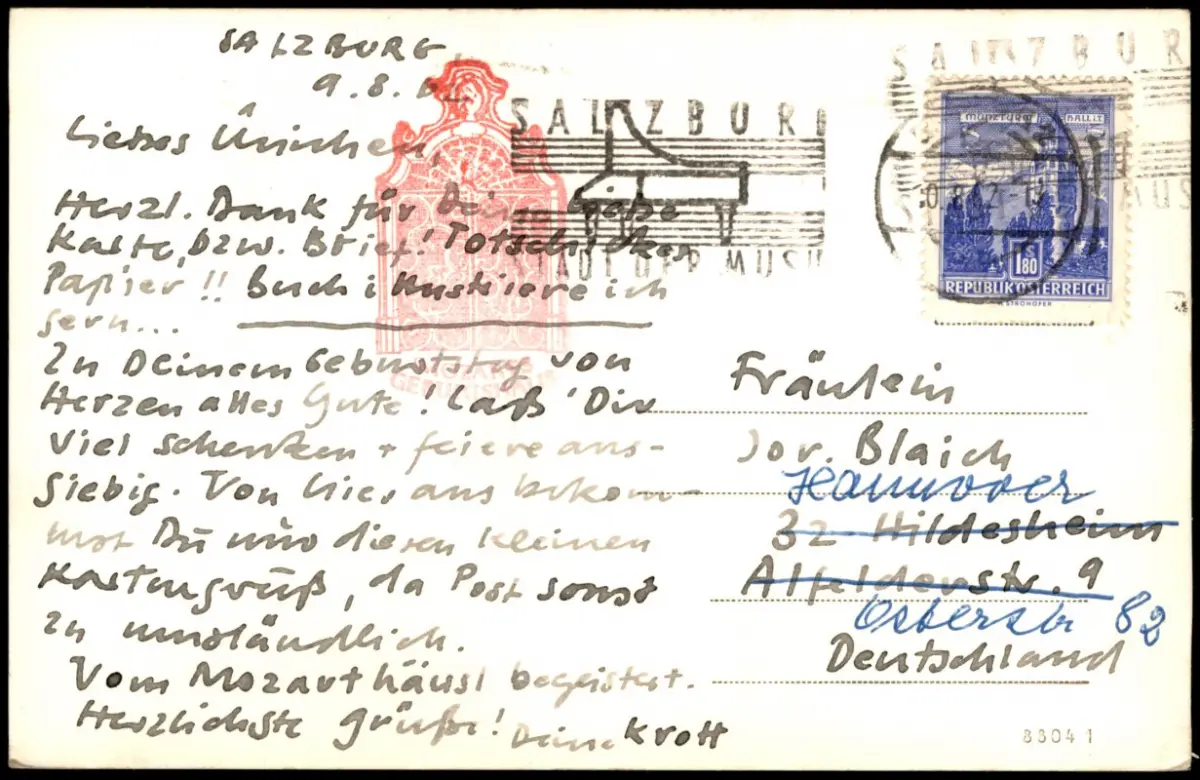 SALZBURG
9.8.62
Liebes Ünichen,
Herzl. Dank für Deine liebe
Karte, bzw. Brief! Totschicken
Papier!! Buch illustriere ich
gern...
Zu Deinem Geburtstag von
Herzen alles Gute! Laß' Dir
viel schenken + feiere aus-
giebig. Von hier aus bekom-
mst Du nur diesen kleinen
Kartengruß, da Post sonst
zu umständlich.
Vom Mozarthäusl begeistert.
Herzlichste Grüße! Deine Krott
SALZBURG
STADT DER MUSIK
SALZBURG
MUS
MÜNZTURM HALL I.T.
1.80
REPUBLIK ÖSTERREICH
Fräulein
Jor. Blaich
Hannover
32 Hildesheim
Alfelderstr. 9
Osterstr 82
Deutschland
83041